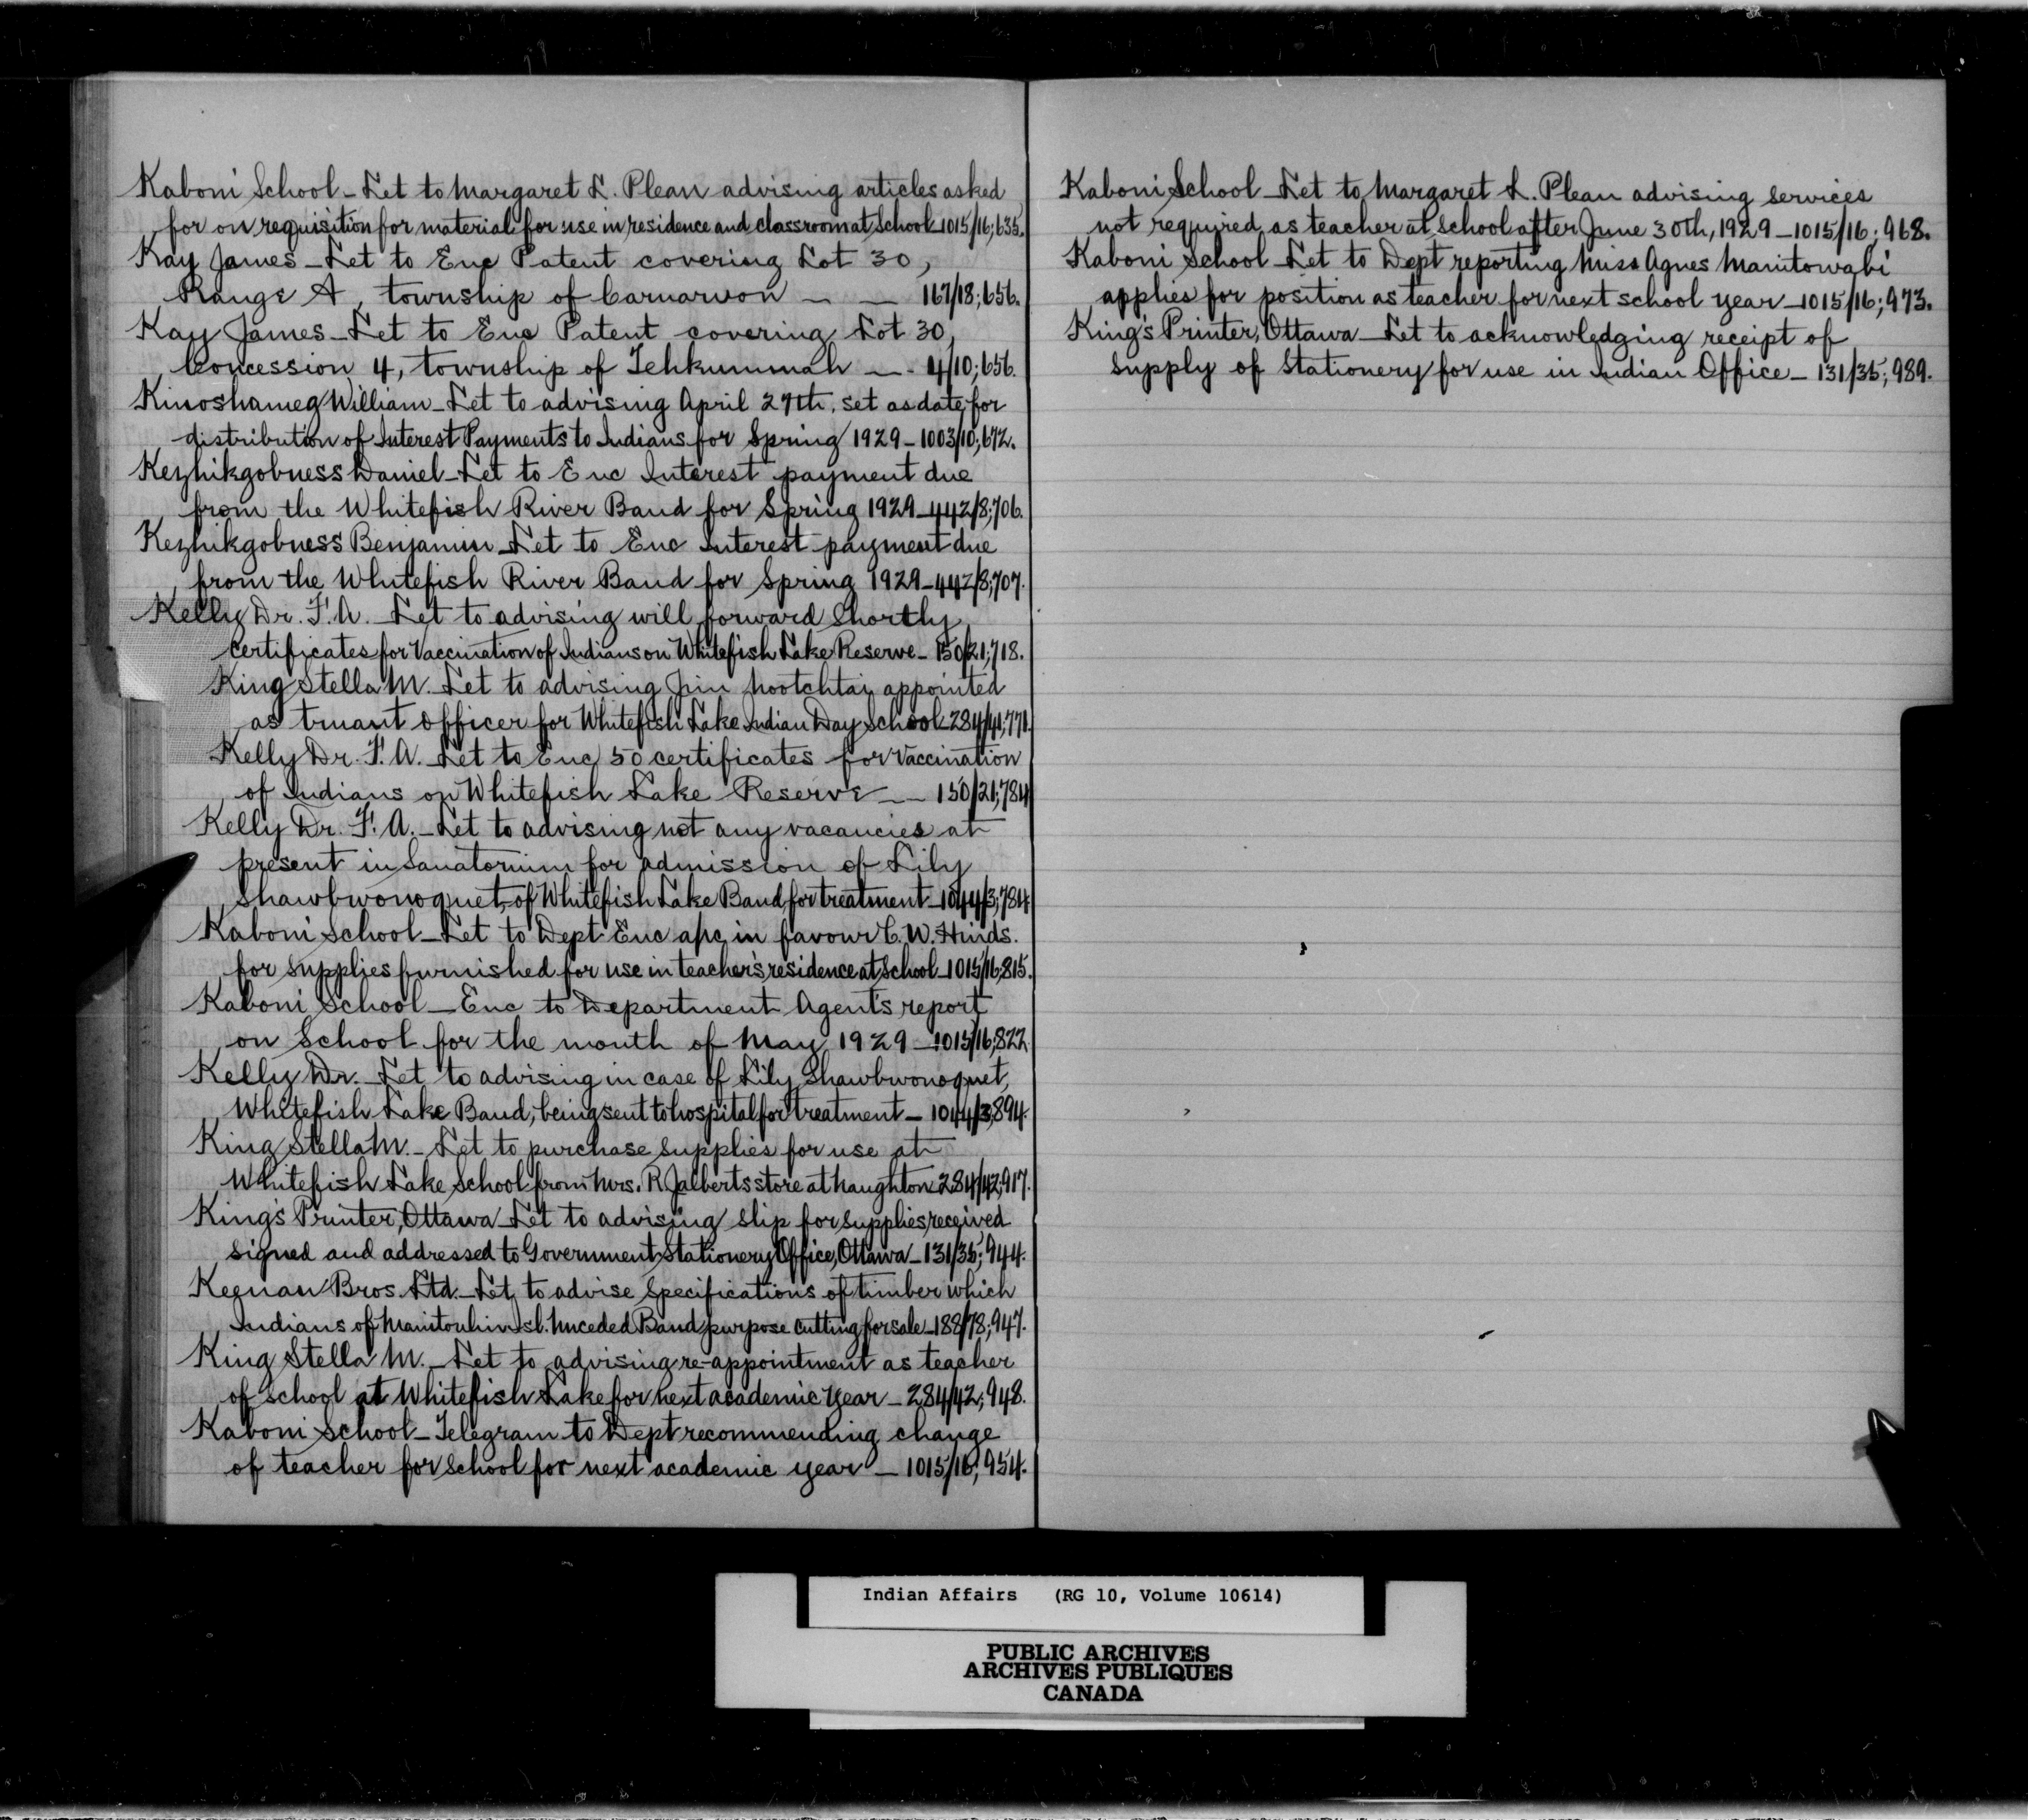 Kaboni School - Let to Margaret L. Plean advising articles asked
for on requisition for material for use in residence and classroom at School - 1015/16; 635.
Kay James - Let to Enc Patent covering Lot 30,
Range A, township of Carnarvon - - 167/18; 656.
Kay James - Let to Enc Patent covering Lot 30,
Concession 4, township of Tehkummah - - 4/10; 656.
Kinoshameg William - Let to advising April 27th. set as date for
distribution of Interest Payments to Indians for Spring 1929 - 1003/10; 672.
Kezhikgobness Daniel - Let to Enc Interest payment due
from the Whitefish River Band for Spring 1929 - 442/8; 706.
Kezhikgobness Benjamin - Let to Enc Interest payment due
from the Whitefish River Band for Spring 1929 - 442/8; 707.
Kelly Dr. F. A. - Let to advising will forward shortly
certificates for Vaccination of Indians on Whitefish Lake Reserve - 150/21; 718.
King Stella M. - Let to advising Jim Nootchtai appointed
as truant officer for Whitefish Lake Indian Day School - 284/41; 771.
Kelly Dr. F. A. - Let to Enc 50 certificates for Vaccination
of Indians on Whitefish Lake Reserve - - 150/21; 784
Kelly Dr. F. A. - Let to advising not any vacancies at
present in Sanatorium for admission of Lily
Shawbwonoquet, of Whitefish Lake Band, for treatment - 1044/3; 784
Kaboni School - Let to Dept Enc a/c in favour C. W. Hinds.
for supplies furnished for use in teacher's residence at School - 1015/16; 815.
Kaboni School - Enc to Department Agent's report
on School for the month of May 1929 - 1015/16; 822
Kelly Dr. - Let to advising in case of Lily Shawbwonoquet,
Whitefish Lake Band, being sent to hospital for treatment - 1044/3; 894.
King Stella M. - Let to purchase supplies for use at
Whitefish Lake School from Mrs. R. Jalberts store at Naughton 284/42; 917.
King's Printer, Ottawa - Let to advising slip for supplies received
signed and addressed to Government Stationery Office, Ottawa - 131/35; 944.
Keenan Bros. Ltd. - Let to advise specifications of timber which
Indians of Manitoulin Isl. Unceded Band purpose cutting for sale - 188/78; 947.
King Stella M. - Let to advising re-appointment as teacher
of school at Whitefish Lake for next academic year - 284/42; 948.
Kaboni School - Telegram to Dept recommending change
of teacher for School for next academic year - 1015/16; 954.
Kaboni School - Let to Margaret L. Plean advising services
not required as teacher at School after June 30th, 1929 - 1015/16; 968.
Kaboni School - Let to Dept reporting Miss Agnes Manitowabi
applies for position as teacher for next school year - 1015/16; 973.
King's Printer, Ottawa - Let to acknowledging receipt of
supply of Stationery for use in Indian Office - 131/35; 989.
Indian Affairs (RG 10, Volume 10614)
PUBLIC ARCHIVES
ARCHIVES PUBLIQUES
CANADA